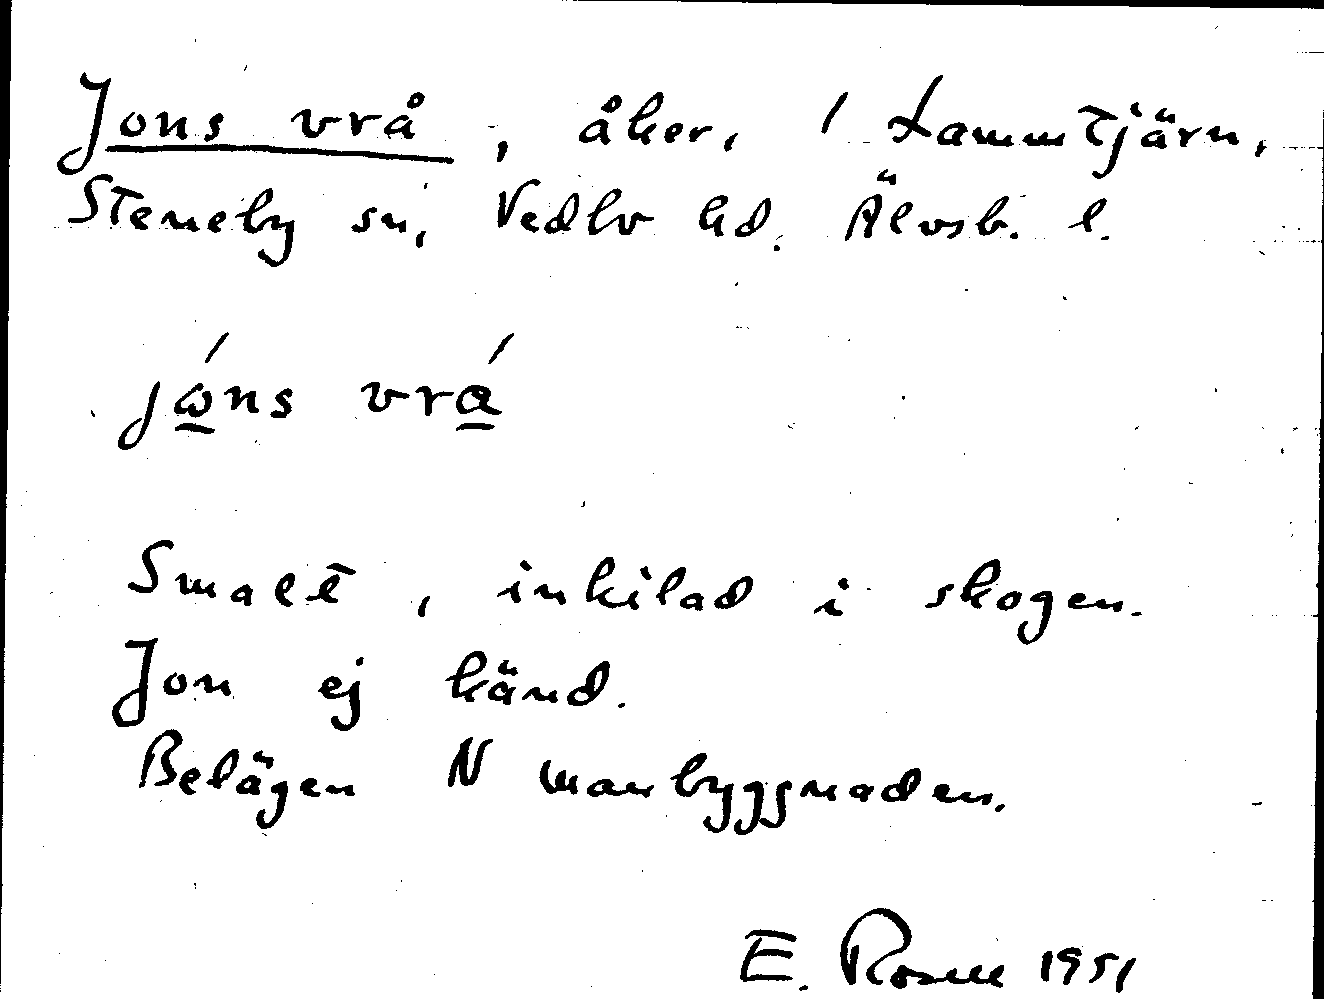 Jons vrå, åker, 1 Lammtjärn,
Steneby sn, Vedbo hd. Älvsb. l.
jώ̱ns vrá̱
Smalt, inkilad i skogen.
Jon ej känd.
Belägen N manbyggnaden.
E. Rosne 1951